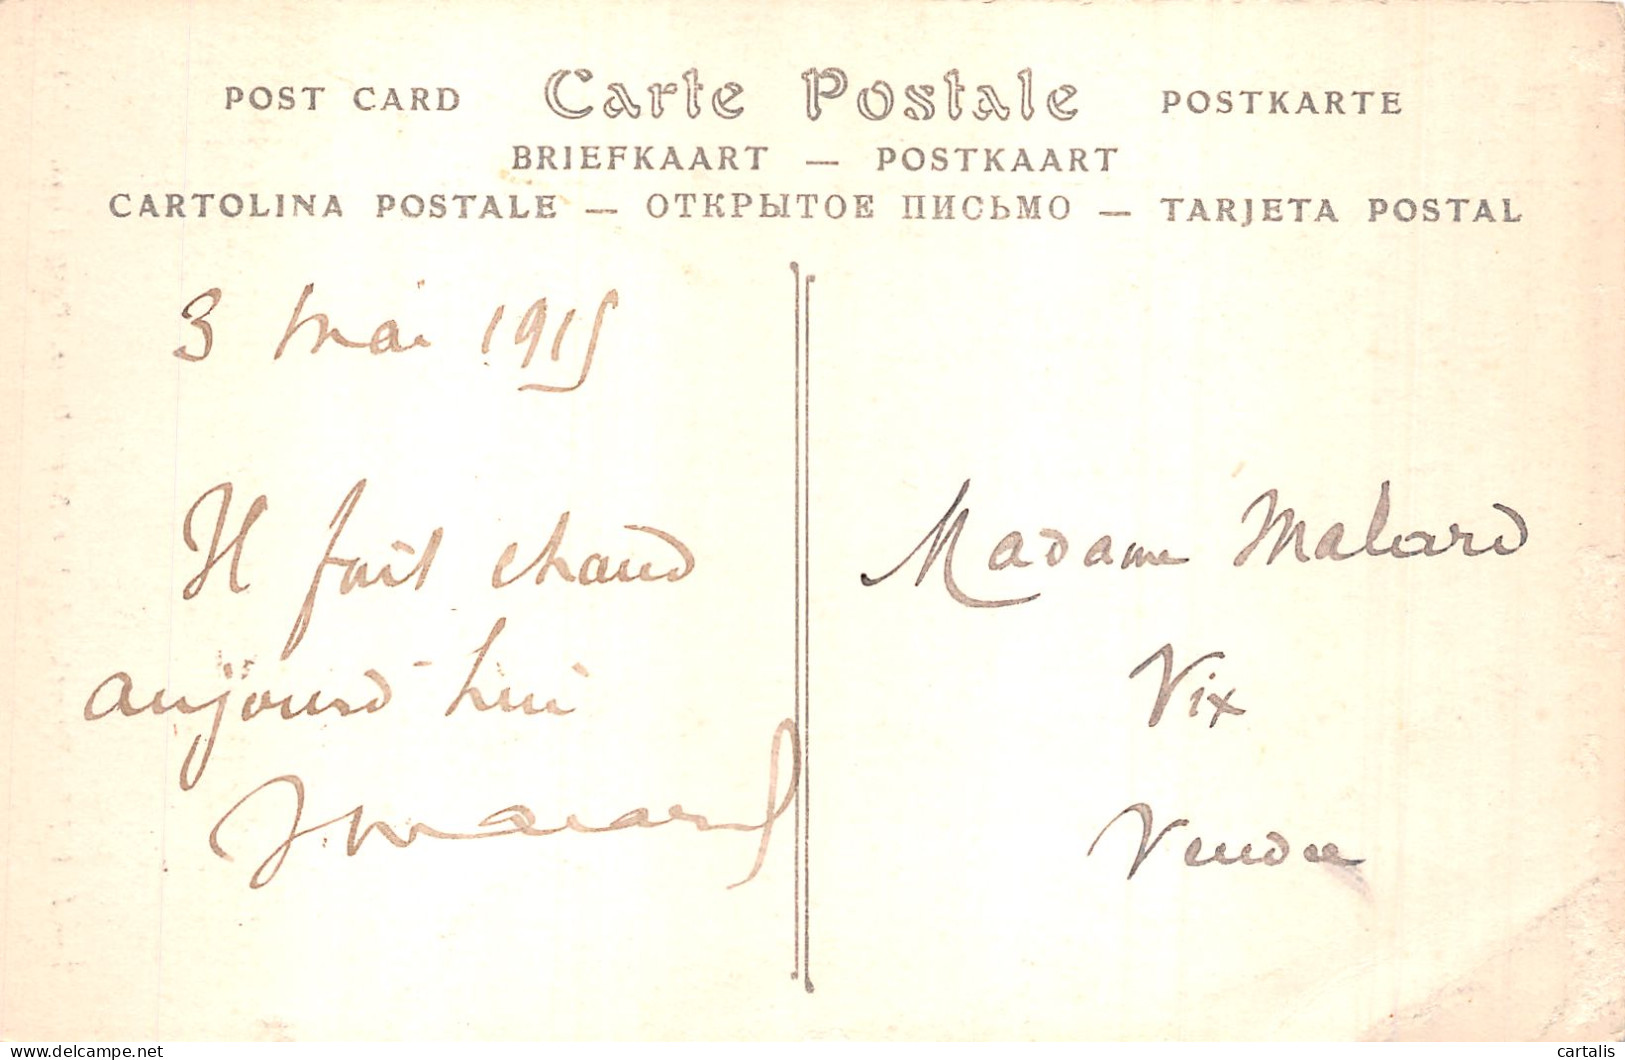 POST CARD Carte Postale POSTKARTE
BRIEFKAART — POSTKAART
CARTOLINA POSTALE — ОТКРЫТОЕ ПИСЬМО — TARJETA POSTAL
3 Mai 1915
Il fait chaud
aujourd'hui
Madame Malard
Vix
Vendee
cartalis
delcampe.net